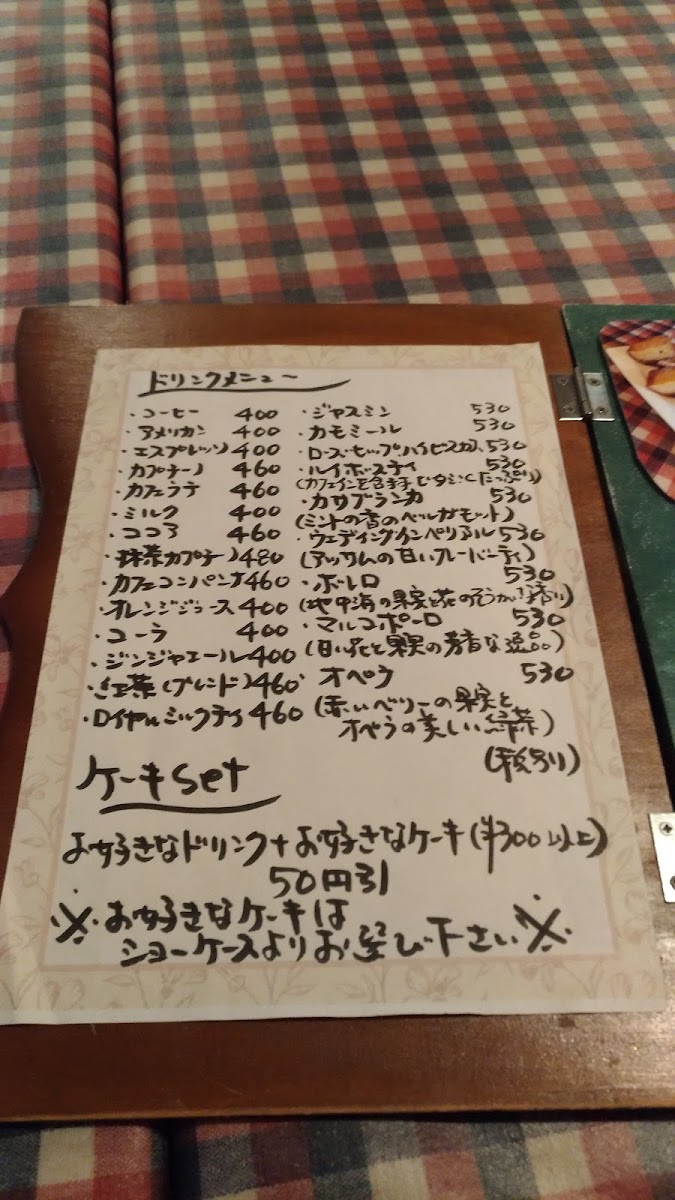 ドリンクメニュー
・コーヒー 400
・アメリカン 400
・エスプレッソ 400
・カプチーノ 460
・カフェラテ 460
・ミルク 400
・ココア 460
・抹茶カプチーノ 480
・カフェコンパンナ 460
・オレンジジュース 400
・コーラ 400
・ジンジャエール 400
・紅茶(ブレンド) 460
・ロイヤルミルクティ 460
・ジャスミン 530
・カモミール 530
・ローズヒップ,ハイビスカス 530
・ルイボスティ 530
(カフェインを含まず ビタミンCたっぷり)
・カサブランカ 530
(ミントの香のベルガモット)
・ウェディングインペリアル 530
(アッサムの甘いフレーバーティ)
・ボレロ 530
(地中海の果実と花の香り)
・マルコポーロ 530
(甘い花と果実の芳香な逸品)
オペラ 530
(赤いベリーの果実と
オペラの美しい緑茶)
(税別)
ケーキset
お好きなドリンク+お好きなケーキ(¥300以上)
50円引
※・お好きなケーキは
ショーケースよりお選び下さい※